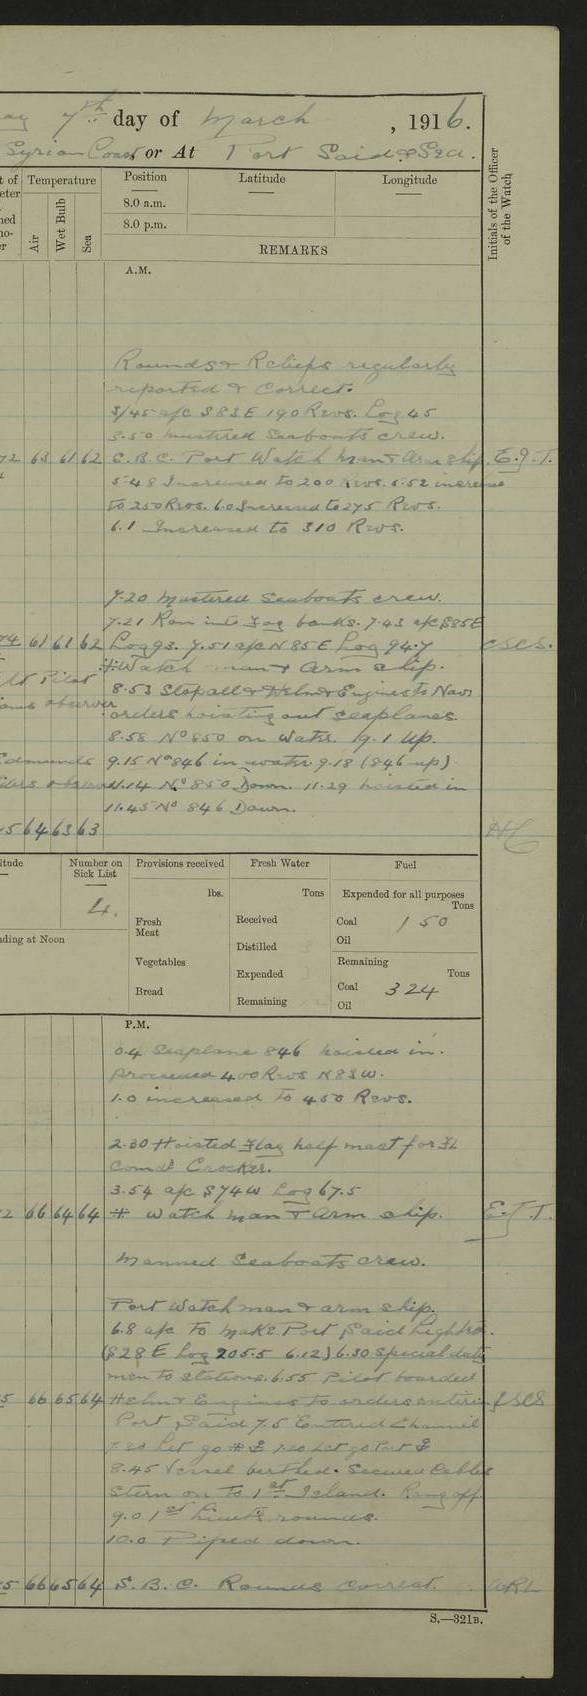 7th day of March, 1916.
Syrian Coast or At Port Said & Sea.
Temperature
Position
Latitude
Longitude
Air
Wet Bulb
Sea
8.0 a.m.
8.0 p.m.
Initials of the Officer of the Watch
REMARKS
A.M.
Rounds & Reliefs regularly
reported & Correct.
3/45 a/c S83E 190 Revs. Log 45
3.50 mustered Seaboats crew.
63 61 62 C.B.C. Port Watch Man & Arm ship. E.J.T.
5.48 Increased to 200 Revs. 5.52 increase
to 250 Revs. 6.0 Increased to 275 Revs.
6.1 Increased to 310 Revs.
7.20 Mustered Seaboats crew.
7.21 Ran into Fog banks. 7.43 a/c S85E
74 61 61 62 Log 93. 7.51 a/c N85E Log 94.7
Watch man & Arm ship.
Lt Pilot
8.53 Stop all & Helm & Engines to Nav.
observer orders hoisting out seaplanes.
8.58 No 850 on water. 9.1 Up.
Edmunds 9.15 No 846 in water 9.18 (846 up)
11.14 No 850 Down. 11.29 hoisted in
11.45 No 846 Down.
5 64 63 63
Number on Sick List
4.
Provisions received
lbs.
Fresh Meat
Vegetables
Bread
Fresh Water
Tons
Received
Distilled
Expended
Remaining
Fuel
Expended for all purposes
Tons
Coal 150
Oil
Remaining
Tons
Coal 324
Oil
nding at Noon
P.M.
0.4 Seaplane 846 hoisted in.
Proceeded 400 Revs N83W.
1.0 increased to 450 Revs.
2.30 Hoisted Flag half mast for Fl
Comdr Crocker.
3.54 a/c S74W Log 67.5
2 66 64 64 Watch man & Arm ship. E.J.T.
Manned Seaboats crew.
Port Watch man & arm ship.
6.8 a/c To make Port Said Light
(S28E Log 205.5 6.12) 6.30 Special duty
men to stations. 6.55 Pilot boarded
5 66 65 64 Helm & Engines to orders entering
Port Said 7.5 Entered Channel
let go Port
8.45 Vessel berthed. Secured Cables
Stern on to 1st Island. Ring off.
9.0 1st Lieuts rounds.
10.0 Piped down.
5 66 65 64 S.B.C. Rounds Correct. ARL
S.—321B.